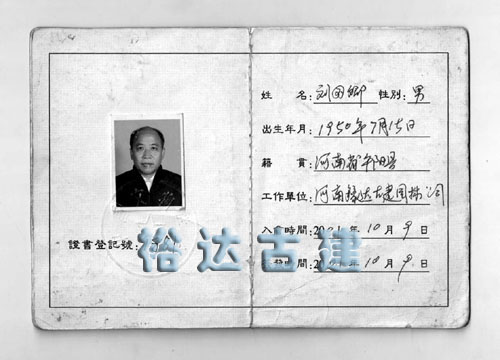 姓 名:刘国卿 性別:男
出生年月:1950年7月15日
籍 貫:河南省
工作單位:河南裕达古建园林公司
入會時間: 年10月9日
時間: 年10月9日
證書登記號:
裕达古建